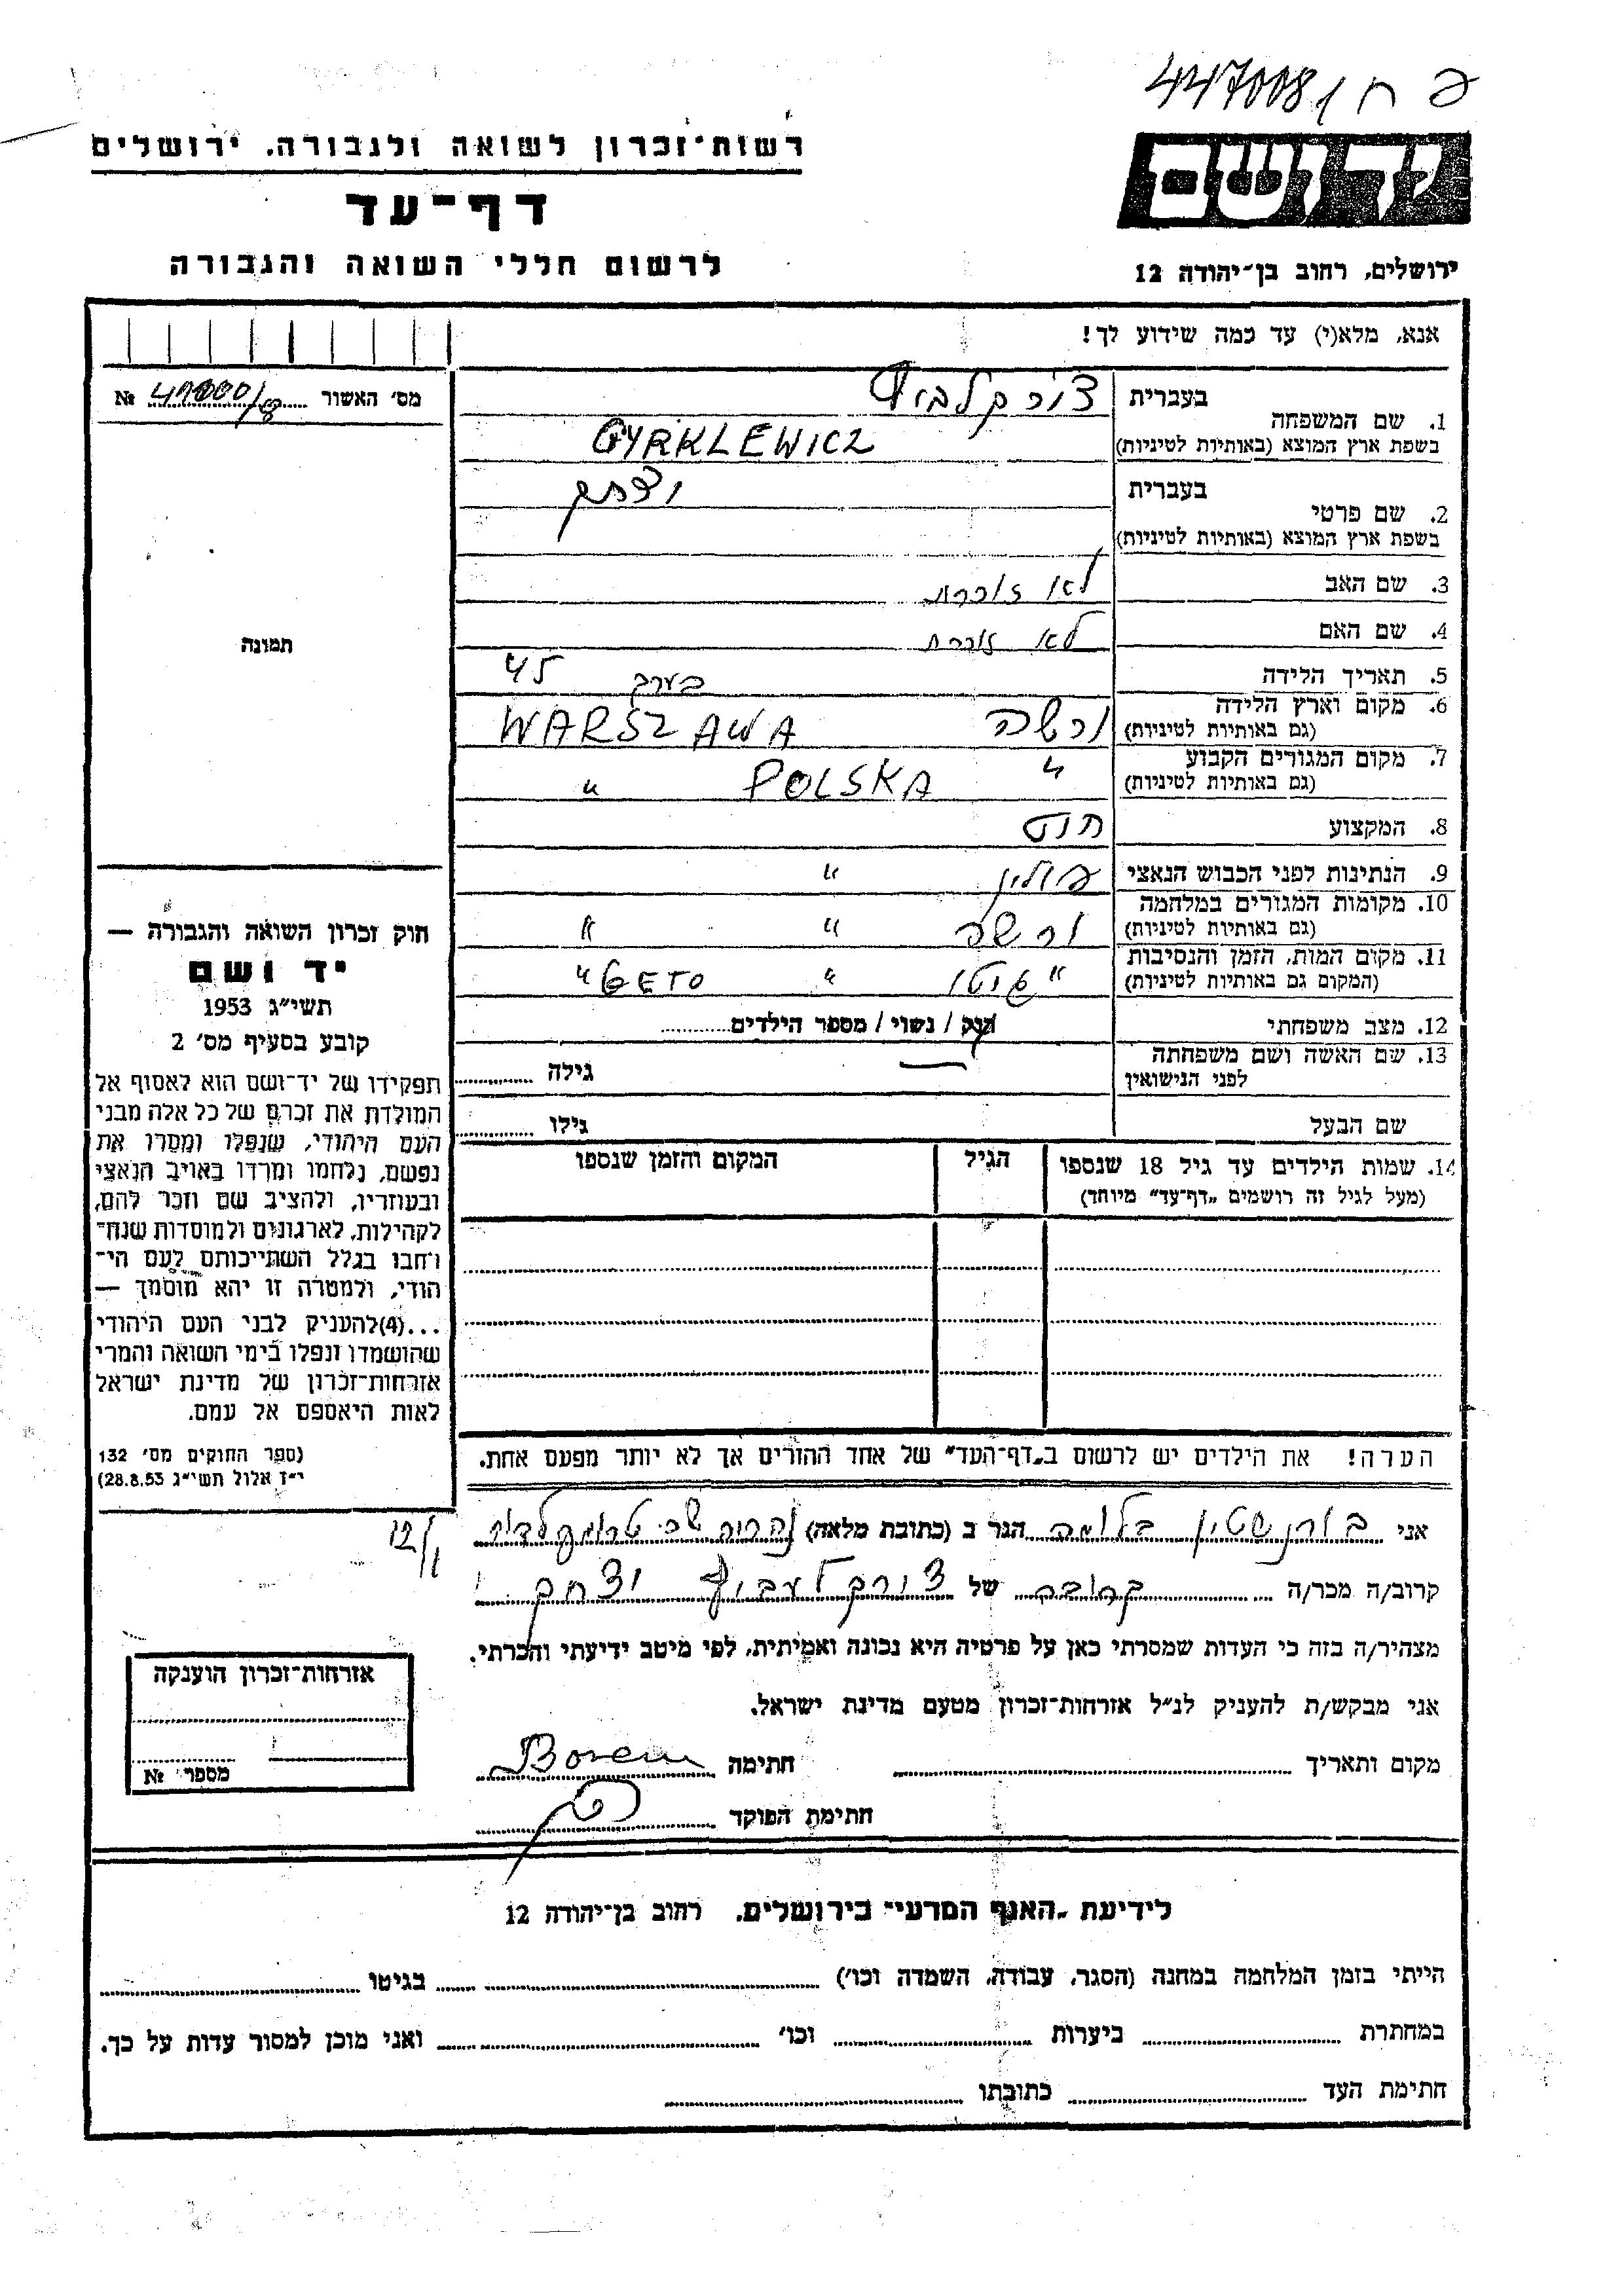 447008/ ח פ
יד ושם
רשות־זכרון לשואה ולגבורה, ירושלים
דף־עד
לרשום חללי השואה והגבורה
ירושלים, רחוב בן־יהודה 12
אנא, מלא(י) עד כמה שידוע לך!
מס׳ האשור № 
1. שם המשפחה בעברית צירקלביץ
בשפת ארץ המוצא (באותיות לטיניות) CYRKLEWICZ
2. שם פרטי בעברית יצחק
בשפת ארץ המוצא (באותיות לטיניות)
3. שם האב לא זוכרת
4. שם האם לא זוכרת
5. תאריך הלידה בערך 45
6. מקום וארץ הלידה ורשה WARSZAWA
(גם באותיות לטיניות)
7. מקום המגורים הקבוע " POLSKA "
(גם באותיות לטיניות)
8. המקצוע חיט
9. הנתינות לפני הכבוש הנאצי פולין "
10. מקומות המגורים במלחמה ורשה " "
(גם באותיות לטיניות)
11. מקום המות, הזמן והנסיבות "גיטו" "GETO"
(המקום גם באותיות לטיניות)
12. מצב משפחתי רוק / נשוי / מספר הילדים
13. שם האשה ושם משפחתה —
לפני הנישואין גילה
שם הבעל גילו
14. שמות הילדים עד גיל 18 שנספו הגיל המקום והזמן שנספו
(מעל לגיל זה רושמים „דף־עד״ מיוחד)
תמונה
חוק זכרון השואה והגבורה —
יד ושם
תשי״ג 1953
קובע בסעיף מס׳ 2
תפקידו של יד־ושם הוא לאסוף אל
המולדת את זכרם של כל אלה מבני
העם היהודי, שנפלו ומסרו את
נפשם, נלחמו ומרדו באויב הנאצי
ובעוזריו, ולהציב שם וזכר להם,
לקהילות, לארגונים ולמוסדות שנח־
רבו בגלל השתייכותם לעם הי־
הודי, ולמטרה זו יהא מוסמך —
...(4)להעניק לבני העם היהודי
שהושמדו ונפלו בימי השואה והמרי
אזרחות־זכרון של מדינת ישראל
לאות היאספם אל עמם.
(ספר החוקים מס׳ 132
י״ז אלול תשי״ג 28.8.53)
הערה! את הילדים יש לרשום ב„דף־העד״ של אחד ההורים אך לא יותר מפעם אחת.
אני בורנשטין בלומה הגר ב (כתובת מלאה) נהריה שכ׳ טרומפלדור
12/1
קרוב/ה מכר/ה קרובה של צירקלעביץ יצחק
מצהיר/ה בזה כי העדות שמסרתי כאן על פרטיה היא נכונה ואמיתית, לפי מיטב ידיעתי והכרתי.
אני מבקש/ת להעניק לנ״ל אזרחות־זכרון מטעם מדינת ישראל.
מקום ותאריך חתימה
חתימת הפוקד
אזרחות־זכרון הוענקה
מספר №
לידיעת „האגף המדעי״ בירושלים, רחוב בן־יהודה 12
הייתי בזמן המלחמה במחנה (הסגר, עבודה, השמדה וכו׳) בגיטו
במחתרת ביערות וכו׳ ואני מוכן למסור עדות על כך.
חתימת העד כתובתו